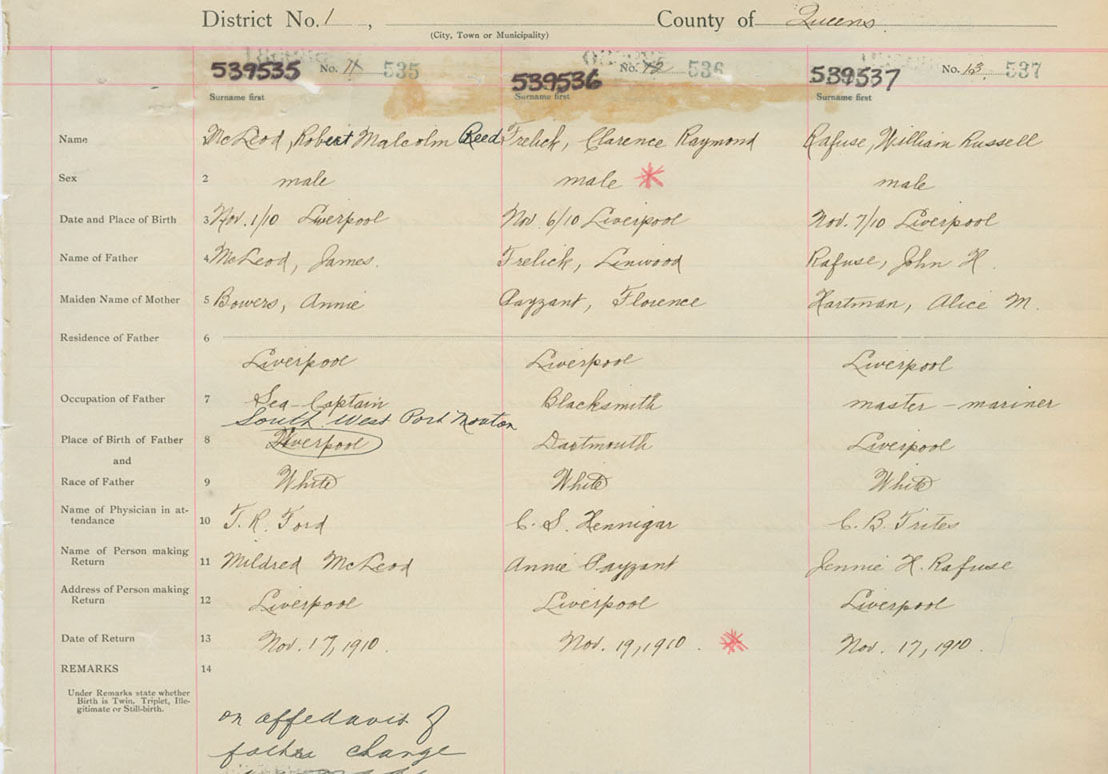 District No. 1 , County of Queens
(City, Town or Municipality)
539535 No. 535 539536 No. 536 539537 No. 537
Surname first Surname first Surname first
Name McLeod, Robert Malcolm Reed Frelick, Clarence Raymond Rafuse, William Russell
Sex 2 male male male
Date and Place of Birth 3 Nov. 1/10 Liverpool Nov 6/10 Liverpool Nov. 7/10 Liverpool
Name of Father 4 McLeod, James. Frelick, Linwood Rafuse, John H.
Maiden Name of Mother 5 Bowers, Annie Payzant, Florence Hartman, Alice M.
Residence of Father 6
Liverpool Liverpool Liverpool
Occupation of Father 7 Sea-Captain Blacksmith master-mariner
South West Port Mouton
Place of Birth of Father 8 Liverpool Dartmouth Liverpool
and
Race of Father 9 White White White
Name of Physician in at-
tendance 10 T. R. Ford C. S. Hennigar C. B. Trites
Name of Person making
Return 11 Mildred McLeod Annie Payzant Jennie H. Rafuse
Address of Person making
Return 12 Liverpool Liverpool Liverpool
Date of Return 13 Nov. 17, 1910. Nov. 19, 1910. Nov. 17, 1910.
REMARKS 14
Under Remarks state whether
Birth is Twin, Triplet, Ille-
gitimate or Still-birth.
on affedavis of
father change